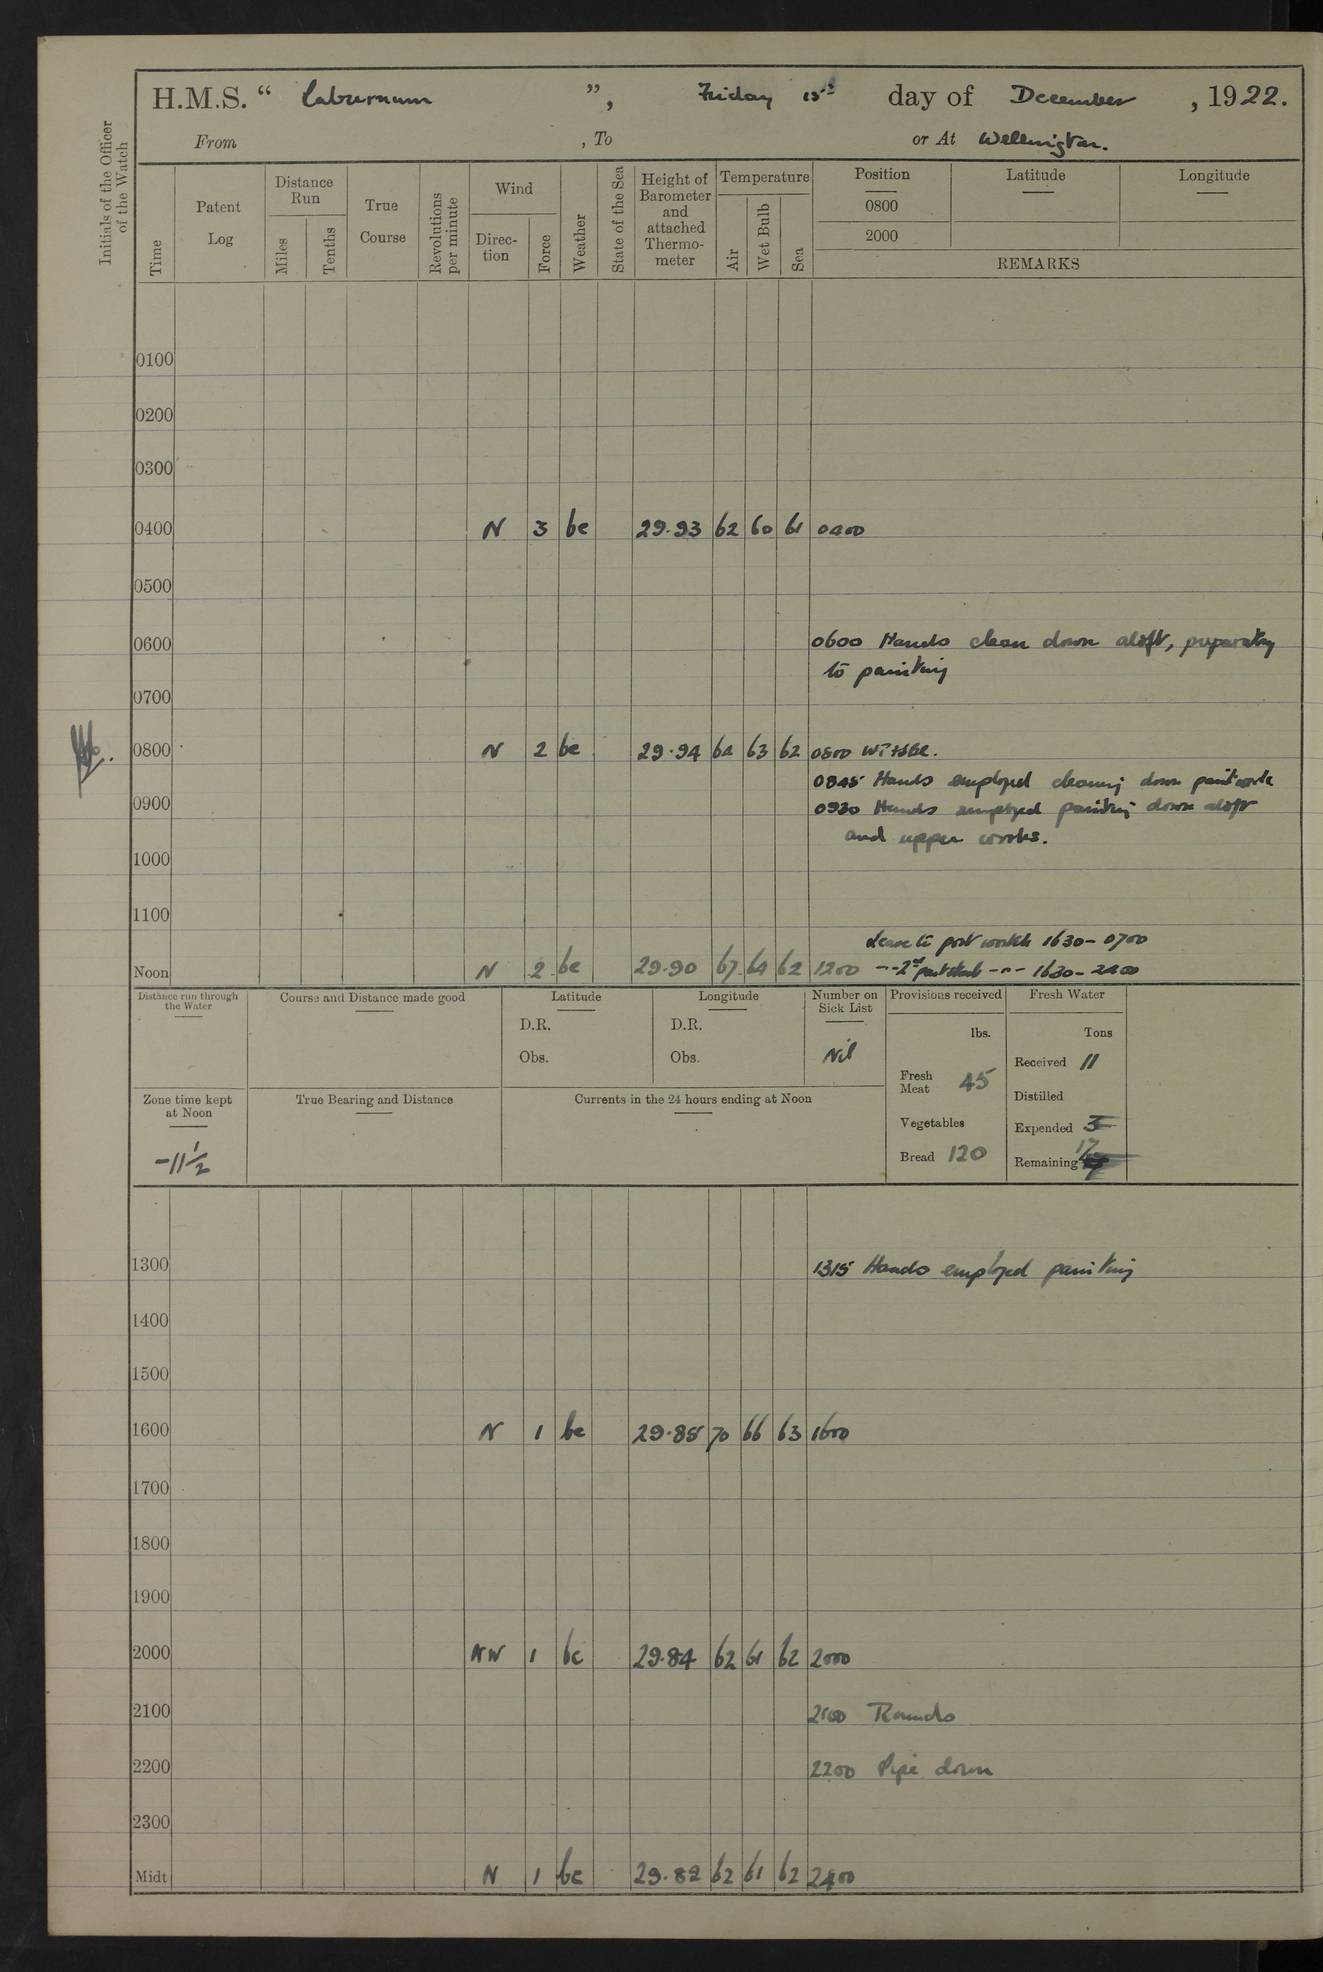 H.M.S. “ Laburnum ”, Friday 15th day of December , 1922.
From , To or At Wellington.
Initials of the Officer of the Watch
Time
Patent Log
Distance Run
Miles
Tenths
True Course
Revolutions per minute
Wind
Direc-tion
Force
Weather
State of the Sea
Height of Barometer and attached Thermo-meter
Temperature
Air
Wet Bulb
Sea
Position
0800
2000
Latitude
Longitude
REMARKS
0100
0200
0300
0400 N 3 bc 29.93 62 60 61 0400
0500
0600 0600 Hands clean down aloft, preparatory
to painting
0700
0800 N 2 bc 29.94 64 63 62 0800
0845 Hands employed cleaning down paintwork
0900 0930 Hands employed painting down aloft
and upper works.
1000
1100
Leave to port watch 1630 - 0700
Noon N 2 bc 29.90 67 64 62 1200 - - 2nd part stbd - " - 1630 - 2400
Distance run through the Water
Course and Distance made good
Latitude
D.R.
Obs.
Longitude
D.R.
Obs.
Number on Sick List
Nil
Provisions received
lbs.
Fresh Meat 45
Vegetables
Bread 120
Fresh Water
Tons
Received 11
Distilled
Expended 5
Remaining 17
Zone time kept at Noon
-11 1/2
True Bearing and Distance
Currents in the 24 hours ending at Noon
1300 1315 Hands employed painting
1400
1500
1600 N 1 bc 29.85 70 66 63 1600
1700
1800
1900
2000 NW 1 bc 29.84 62 61 62 2000
2100 2100 Rounds
2200 2200 Pipe down
2300
Midt N 1 bc 29.82 62 61 62 2400